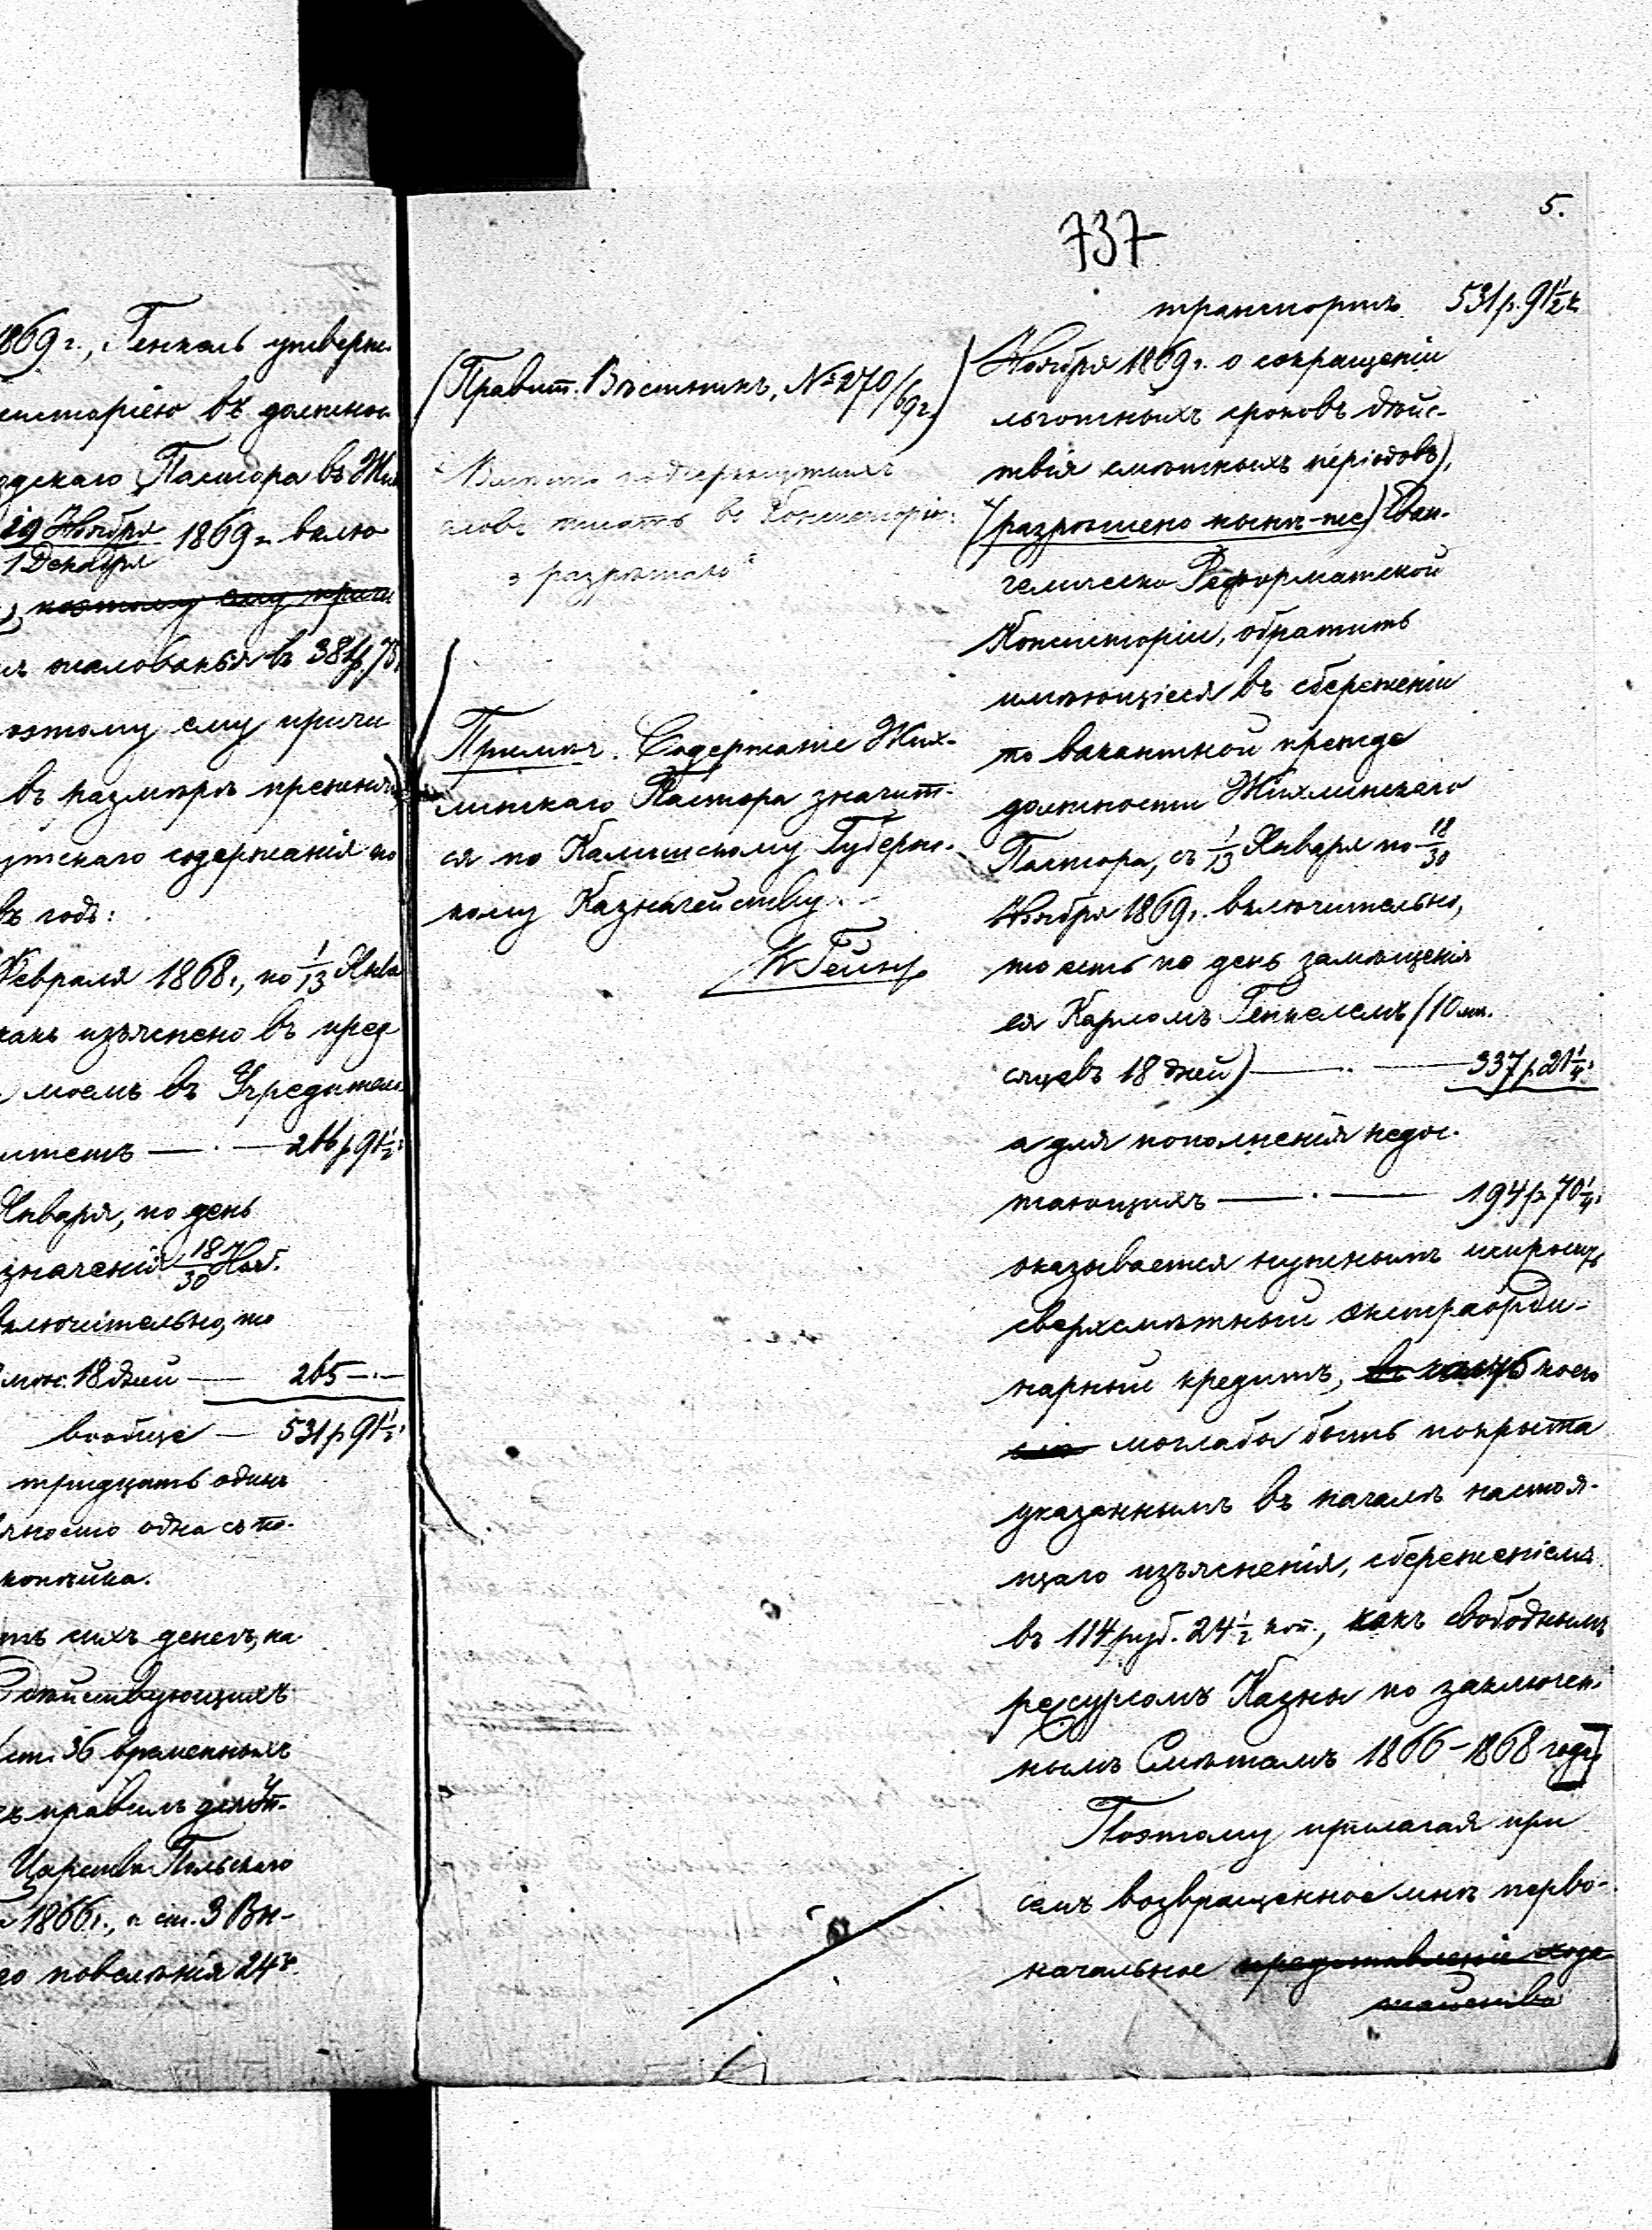 1869 г., Генкель утвержд
систоріею въ должнос
одскаго Пастора въ Жих
19 Ноября
1 Декабря 1869 г. вклю
поэтому ему причи
жалованья въ 38 р. 75
оэтому ему причи
въ размѣрѣ прежня
утскаго содержанія по
въ годъ:
Февраля 1868 г., по 1/13 Янва
какъ изъяснено въ пред
моемъ въ Учредител
митетъ — 266 р 91½
Января, по день
значенія 18/30 Нояб.
включительно, то
мѣс. 18 дней — 265 —
вообще — 531 р 91½
тридцать одинъ
вяносто одна съ по-
копѣйка.
ть сихъ денегъ, на
дѣйствующихъ
ст. 36 временныхъ
хъ правилъ
Царства Польскаго
1866 г., и ст. 3 Вы-
го повелѣнія 24
5.
737
(Правит. Вѣстникъ, № 270/69 г.)
разрѣшало
Примѣч. Содержаніе Жих-
линскаго Пастора значит-
ся по Калишскому Губернс-
кому Казначейству.
транспортъ 531 р. 91½ к
Ноября 1869 г. о сокращеніи
льготныхъ сроковъ дѣйс-
твія смѣтныхъ періодовъ),
(разрѣшено нынѣ-же) Еван-
гелическо Реформатской
Консисторіи, обратить
имѣющіеся въ сбереженіи
по вакантной прежде
должности Жихлинскаго
Пастора, съ 1/13 Января по 18/30
Ноября 1869 г. включительно,
то есть по день замѣщенія
ея Карломъ Генкелемъ (10 мѣ-
сяцевъ 18 дней) — 337 р 21¼
а для пополненія недос-
тающихъ — 194 р 70¼
оказывается нужнымъ испросить
сверхсмѣтный экстраорди-
нарный кредитъ, въ коего
могла бы быть покрыта
указаннымъ въ началѣ настоя-
щаго изъясненія, сбереженіемъ
въ 114 руб. 24½ коп., какъ свободнымъ
ресурсомъ Казны по заключен-
нымъ Смѣтамъ 1866–1868 годъ
Поэтому прилагая при
семъ возвращенное мнѣ перво-
начальное представленіе хода-
тайства